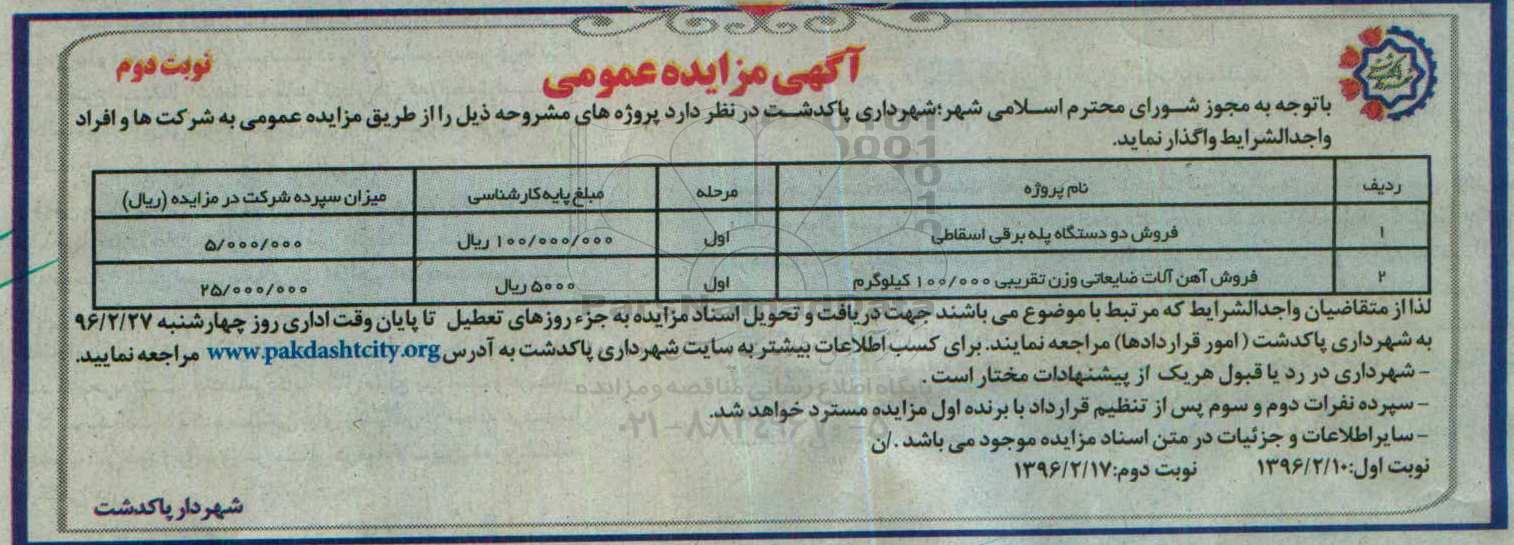 آگهی مزایده عمومی
نوبت دوم
باتوجه به مجوز شورای محترم اسلامی شهر؛شهرداری پاکدشت در نظر دارد پروژه های مشروحه ذیل را از طریق مزایده عمومی به شرکت ها و افراد
واجدالشرایط واگذار نماید.
ردیف نام پروژه مرحله مبلغ پایه کارشناسی میزان سپرده شرکت در مزایده (ریال)
۱ فروش دو دستگاه پله برقی اسقاطی اول ۱۰۰/۰۰۰/۰۰۰ ریال ۵/۰۰۰/۰۰۰
۲ فروش آهن آلات ضایعاتی وزن تقریبی ۱۰۰/۰۰۰ کیلوگرم اول ۵۰۰۰ ریال ۲۵/۰۰۰/۰۰۰
لذا از متقاضیان واجدالشرایط که مرتبط با موضوع می باشند جهت دریافت و تحویل اسناد مزایده به جزء روزهای تعطیل تا پایان وقت اداری روز چهارشنبه ۹۶/۲/۲۷
به شهرداری پاکدشت (امور قراردادها) مراجعه نمایند. برای کسب اطلاعات بیشتر به سایت شهرداری پاکدشت به آدرس www.pakdashtcity.org مراجعه نمایید.
- شهرداری در رد یا قبول هریک از پیشنهادات مختار است.
- سپرده نفرات دوم و سوم پس از تنظیم قرارداد با برنده اول مزایده مسترد خواهد شد.
- سایر اطلاعات و جزئیات در متن اسناد مزایده موجود می باشد./ن
نوبت اول:۱۳۹۶/۲/۱۰ نوبت دوم:۱۳۹۶/۲/۱۷
شهردار پاکدشت